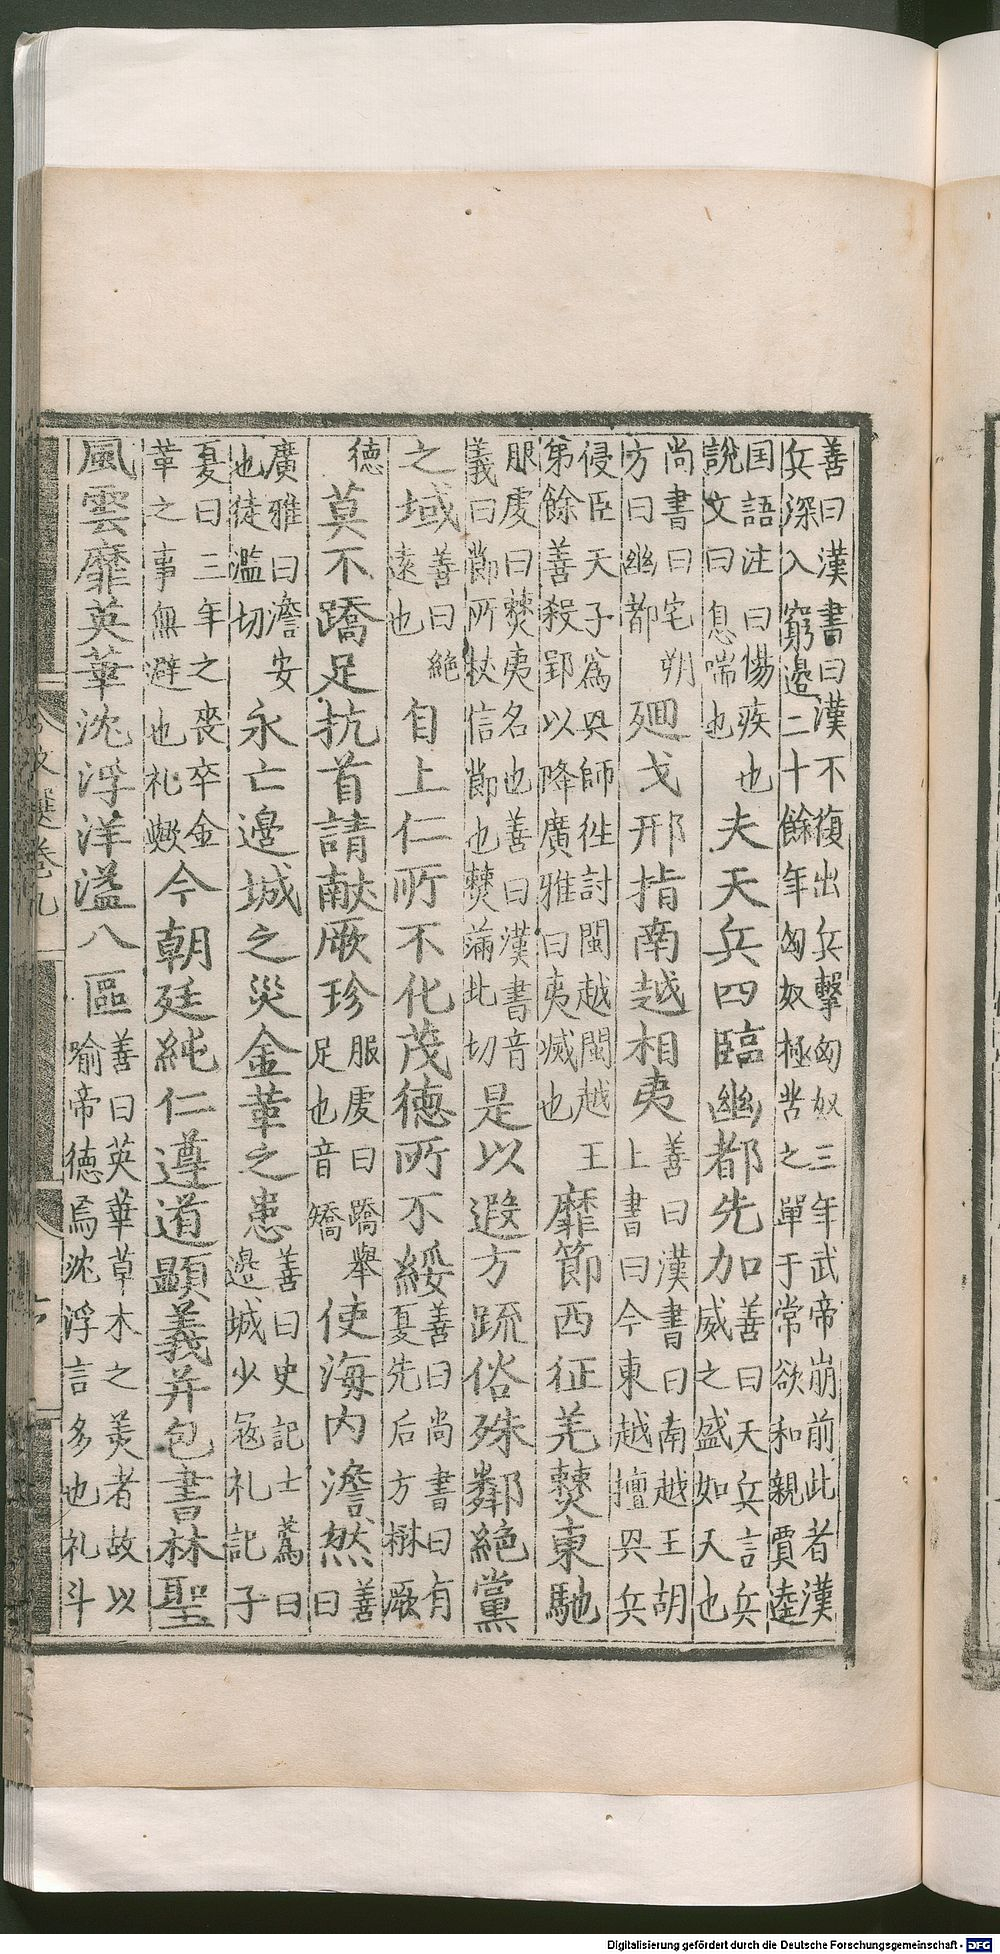 善曰漢書曰漢不復出兵擊匈奴三年武帝崩前此者漢
兵深入窮邊二十餘年匈奴極苦之單于常欲和親賈逵
国語注曰傷疾也
說文曰息喘也
夫天兵四臨幽都先加
善曰天兵言兵
威之盛如天也
尚書曰宅朔
方曰幽都
廻戈邪指南越相夷
善曰漢書曰南越王胡
上書曰今東越擅興兵
侵臣天子爲興師往討閩越閩越王
第餘善殺郢以降廣雅曰夷滅也
靡節西征羌僰東馳
服虔曰僰夷名也善曰漢書音
義曰節所杖信節也僰蒲北切
是以遐方疏俗殊鄰絕黨
之域
善曰絕
遠也
自上仁所不化茂德所不綏
善曰尚書曰有
夏先后方懋厥
德
莫不蹻足抗首請献厥珍
服虔曰蹻舉
足也音矯
使海內澹然
善
曰
廣雅曰澹安
也徒濫切
永亡邊城之災金革之患
善曰史記士蔿曰
邊城少寇礼記子
夏曰三年之喪卒金
革之事無避也礼歟
今朝廷純仁遵道顯義并包書林聖
風雲靡英華沈浮洋溢八區
善曰英華草木之美者故以
喻帝德焉沈浮言多也礼斗
文選卷九
Digitalisierung gefördert durch die Deutsche Forschungsgemeinschaft - DFG